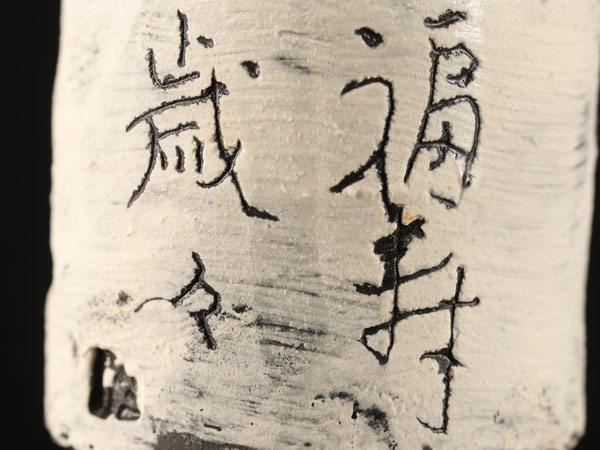 福寿
歳々